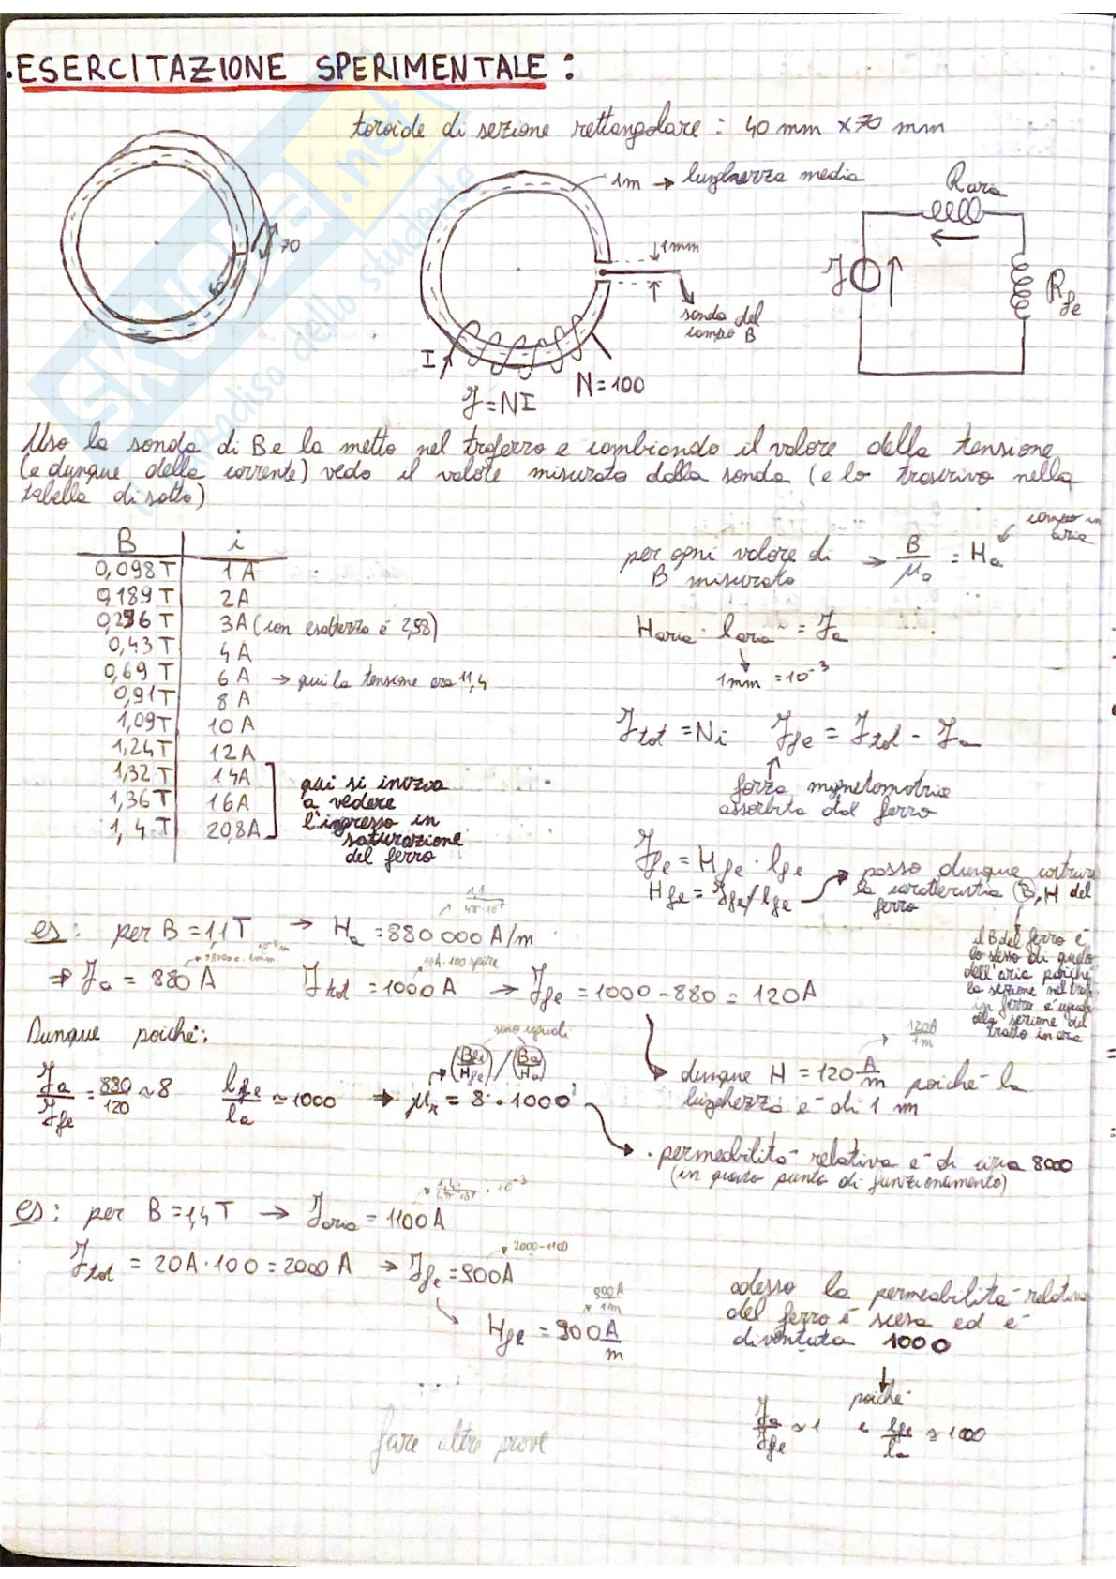 .ESERCITAZIONE SPERIMENTALE :
toroide di sezione rettangolare : 40 mm x 70 mm
1m → lunghezza media
70
1mm
sonda del
campo B
I
N=100
ℱ=NI
R aria
ℱ
R fe
Uso la sonda di B e la metto nel traferro e cambiando il valore della tensione
(e dunque della corrente) vedo il valore misurato dalla sonda (e lo trascrivo nella
tabella di sotto)
B | i
0,098T | 1 A
0,189T | 2A
0,296 T | 3A (con esattezza è 2,98)
0,43 T | 4 A
0,69 T | 6 A → qui la tensione era 11,4
0,91T | 8 A
1,09T | 10 A
1,24T | 12A
1,32 T | 14A
1,36T | 16A
1,4 T | 20,8A
qui si inizia
a vedere
l'ingresso in
saturazione
del ferro
per ogni valore di
B misurato → B/μ₀ = Ha
campo in
aria
Haria · laria = ℱa
1mm = 10⁻³
ℱtot = Ni ℱfe = ℱtot - ℱa
forza magnetomotrice
assorbita dal ferro
ℱfe = Hfe · lfe
Hfe = ℱfe/lfe → posso dunque costruire
la caratteristica (B,H del
ferro
il B del ferro è
lo stesso di quello
dell'aria poiché
la sezione nel tratto
in ferro è uguale
alla sezione del
tratto in aria
es: per B = 1,1T → Ha = 880 000 A/m
⇒ ℱa = 880 A ℱtot = 1000A → ℱfe = 1000 - 880 = 120A
10A·100 spire
Dunque poiché:
sono uguali
ℱa/ℱfe = 880/120 ≈ 8 lfe/la ≈ 1000 ⇒ μr = 8 · 1000
(Bfe/Hfe)/(Ba/Ha)
120A/1m
dunque H = 120 A/m poiché la
lunghezza è di 1 m
. permeabilità relativa è di circa 8000
(in questo punto di funzionamento)
es: per B = 1,4 T → ℱaria = 1100 A
ℱtot = 20A · 100 = 2000 A → ℱfe = 900A
2000-1100
900A/1m
Hfe = 900 A/m
adesso la permeabilità relativa
del ferro è scesa ed è
diventata 1000
poiché
ℱa/ℱfe ≈ 1 e lfe/la ≈ 1000
...
fare altre prove
SKUOLA.net
paradiso dello studente